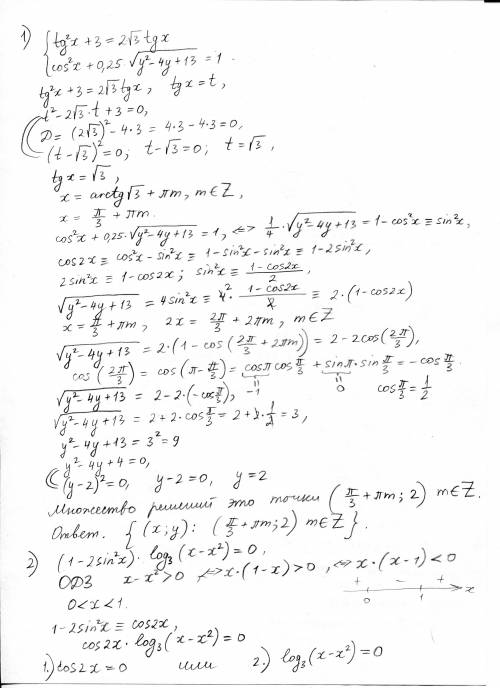 1) { tg²x + 3 = 2√3 tgx
{ cos²x + 0,25·√(y²-4y+13) = 1.
tg²x + 3 = 2√3 tgx, tgx = t,
t² - 2√3·t + 3 = 0,
D = (2√3)² - 4·3 = 4·3 - 4·3 = 0,
(t-√3)² = 0; t-√3 = 0; t = √3,
tgx = √3,
x = arctg√3 + πm, m∈Z,
x = π/3 + πm.
cos²x + 0,25·√(y²-4y+13) = 1, ⇔ 1/4·√(y²-4y+13) = 1-cos²x ≡ sin²x,
cos2x ≡ cos²x - sin²x ≡ 1-sin²x-sin²x ≡ 1-2sin²x,
2sin²x ≡ 1-cos2x; sin²x ≡ (1-cos2x)/2,
√(y²-4y+13) = 4sin²x ≡ 4·(1-cos2x)/2 ≡ 2·(1-cos2x)
x = π/3 + πm, 2x = 2π/3 + 2πm, m∈Z
√(y²-4y+13) = 2·(1-cos(2π/3 + 2πm)) = 2-2cos(2π/3),
cos(2π/3) = cos(π-π/3) = cosπ cos π/3 + sinπ·sin π/3 = -cos π/3.
√(y²-4y+13) = 2-2·(-cos π/3), -1 0 cos π/3 = 1/2
√(y²-4y+13) = 2+2·cos π/3 = 2+2·1/2 = 3,
y²-4y+13 = 3² = 9
y²-4y+4 = 0,
(y-2)² = 0, y-2 = 0, y = 2
Множество решений это точки (π/3 + πm; 2) m∈Z.
Ответ. { (x;y): (π/3 + πm; 2) m∈Z }.
2) (1-2sin²x)·log₃(x-x²) = 0,
ОДЗ x-x² > 0 ⇔ x·(1-x) > 0, ⇔ x·(x-1) < 0
+ - +
0 1 x
0 < x < 1.
1-2sin²x ≡ cos2x,
cos2x·log₃(x-x²) = 0
1.) cos2x = 0 или 2.) log₃(x-x²) = 0